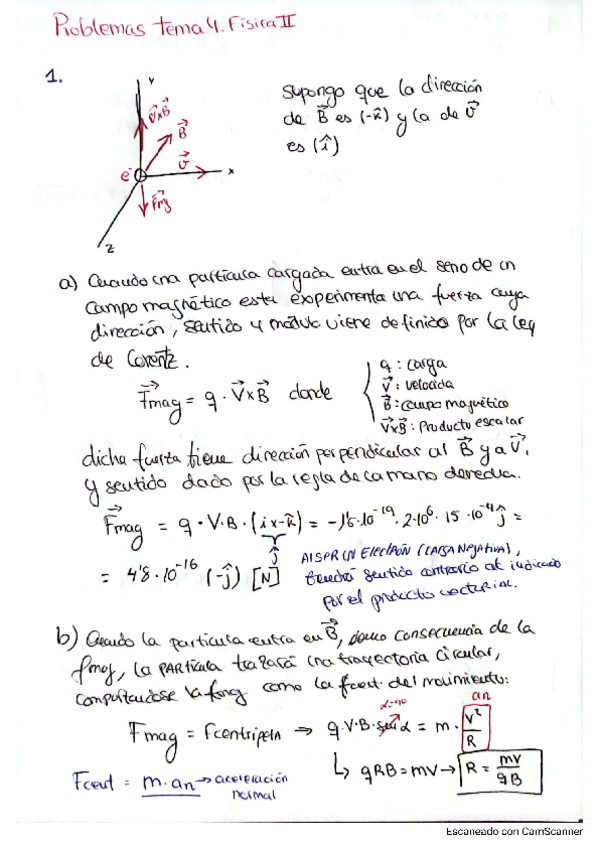 Problemas tema 4. Física II
1.
Y
V⃗xB⃗
B⃗
V⃗
e⁻
x
F⃗mg
Z
Supongo que la dirección
de B⃗ es (-k̂) y la de V⃗
es (î)
a) Cuando una partícula cargada entra en el seno de un
campo magnético esta experimenta una fuerza cuya
dirección, sentido y módulo viene definido por la ley
de Lorentz.
F⃗mag = q · V⃗xB⃗ donde
q : carga
V⃗ : velocida
B⃗ : campo magnético
V⃗xB⃗ : Producto escalar
dicha fuerza tiene dirección perpendicular al B⃗ y a V⃗,
y sentido dado por la regla de la mano derecha.
F⃗mag = q · V · B · (i x -k̂) = -1'6·10⁻¹⁹ · 2·10⁶ · 15·10⁻⁴ ĵ =
ĵ
= 4'8 · 10⁻¹⁶ (-ĵ) [N]
AL SER UN ELECTRÓN (CARGA NEGATIVA),
tendrá sentido contrario al indicado
por el producto vectorial.
b) Cuando la partícula entra en B⃗, como consecuencia de la
fmag, la PARTÍCULA trazará una trayectoria circular,
comportandose la fmg como la fcent del movimiento:
α=90
an
Fmag = Fcentripeta → q·V·B·sen α = m · V²/R
↳ qRB = mV → R = mV/qB
Fcent = m·an → aceleración
normal
Escaneado con CamScanner